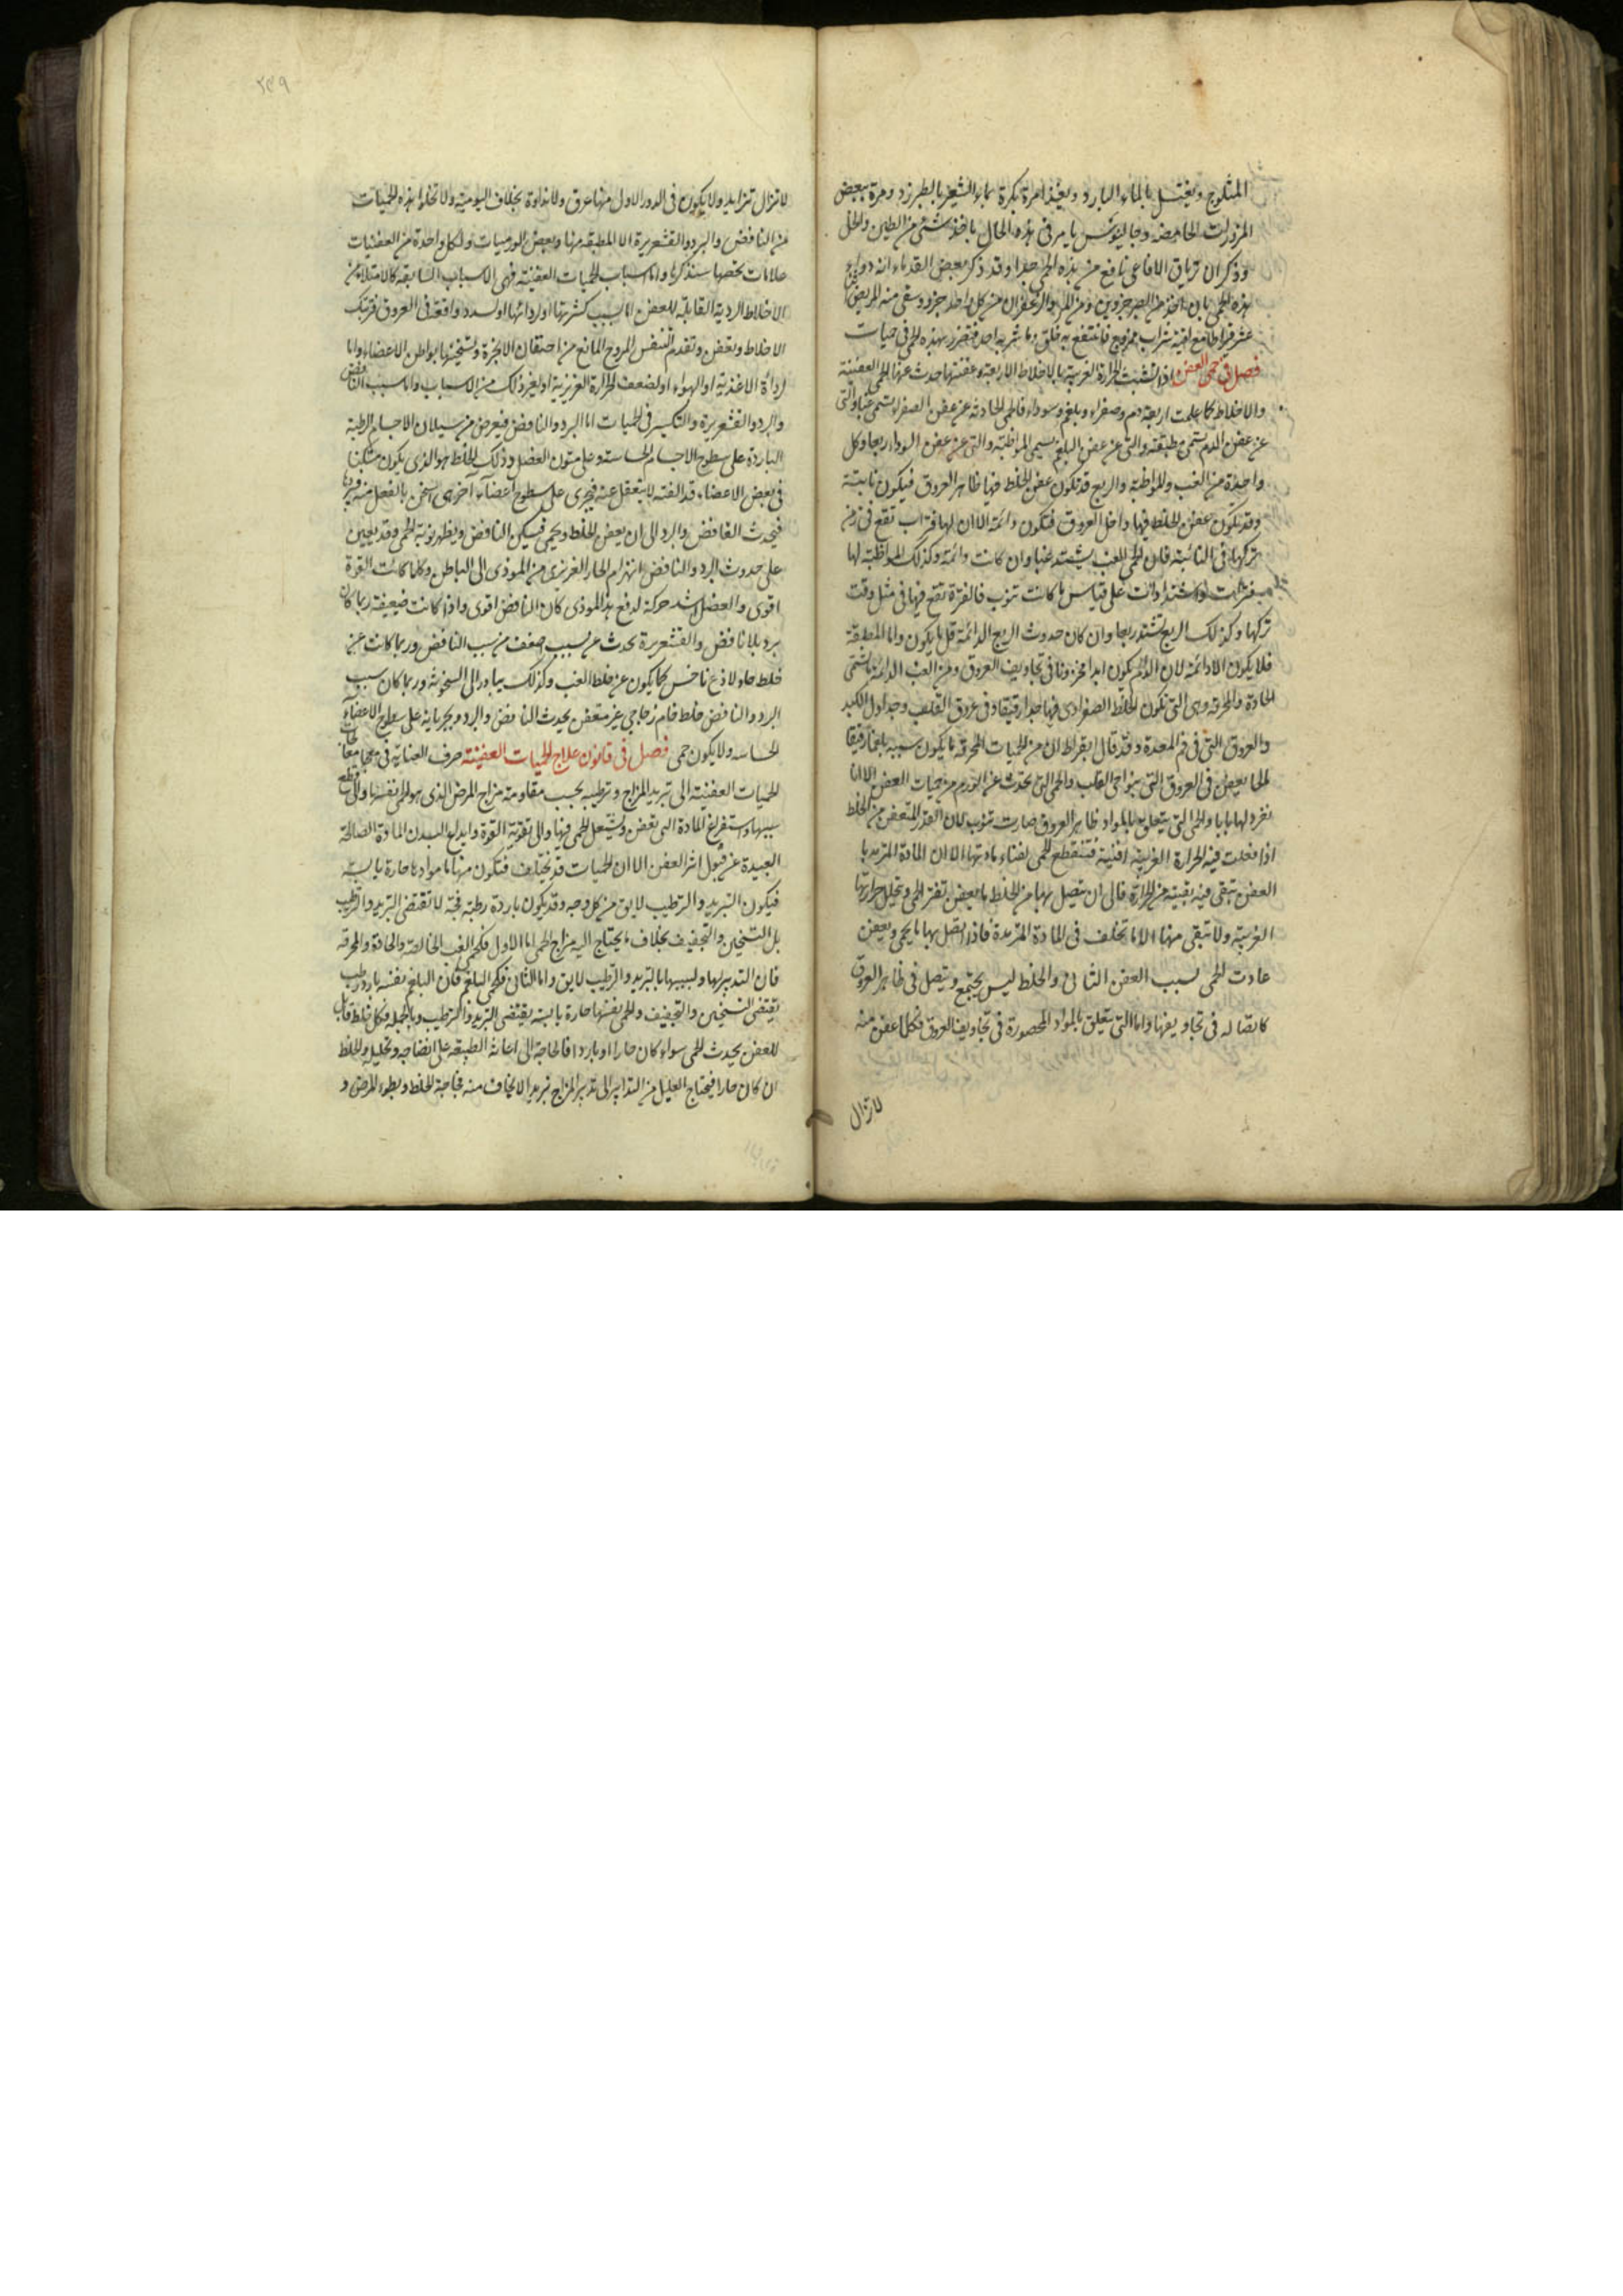 المثلوج ويغتسل بالماء البارد ويغتذا مرة بكرة بماء الشعير بالطبرزد ومرة ببعض
المزورات الحامضة وجالينوس يامر فى هذه الحال باخذ شئ من الطين والخل
وذكر ان ترياق الافاعى نافع من هذه الحمى جدا وقد ذكر بعض القدماء انه دواء
لهذه الحمى بان اخذ من الصبر جزوين ومن المر والزعفران من كل واحد جزو وسقى منه المريض
عشر قراطا مع اوقية شراب ممزوج فانتفع به خلق وما شربه احد فتضرر بهذه الحمى فى حميات
فصل فى حمى العفن اذا تشبثت الحرارة الغريبة بالاخلاط الاربعة وعفنتها حدث عنها الحمى العفنية
والاخلاط كما علمت اربعة دم وصفراء وبلغم وسوداء فالحمى الحادثة عن عفن الصفراء تسمى غبا والتى
عن عفن الدم تسمى مطبقة والتى عن عفن البلغم تسمى المواظبة والتى عن عفن السوداء ربعا وكل
واحدة من الغب والمواظبة والربع قد تكون عفن الخلط فيها ظاهر العروق فيكون نايبة
وقد تكون عفن الخلط فيها داخل العروق فتكون دائمة الا ان لها فترات تقع فى زمن
تركها فى النائبة فان الحمى الغب يشتد غبا وان كانت دائمة وكذلك المواظبة لها
فترات واشتدادات على قياس ما كانت تنوب فالفترة تقع فيها فى مثل وقت
تركها وكذلك الربع تشتد ربعا وان كان حدوث الربع الدائمة قل ما يكون واما المطبقة
فلا يكون الا دائمة لان الدم يكون ابدا مخزونا فى تجاويف العروق ومن الغب الدائمة ما تسمى
الحادة والمحرقة وهى التى تكون الخلط الصفراوى فيها حارا رقيقا وفى عروق القلب وجداول الكبد
والعروق التى فى فم المعدة وقد قال ابقراط ان من الحميات المحرقة ما يكون سببه بلغما رقيقا
مالحا يعفن فى العروق التى بنواحى القلب والحمى التى تحدث عن الورم من حميات العفن الا انا
نفرد لها بابا والحمى التى يتعلق بالمواد ظاهر العروق صارت تنوب لان القدر المتعفن من الخلط
اذا فعلت فيه الحرارة الغريبة افنيه فتنقطع الحمى لفناء مادتها الا ان المادة المتزيد بها
العفن تبقى فيه بقية من الحرارة فالى ان يتصل بها من الخلط ما يعفن تفتر الحمى وتحلل حرارتها
الغريبة ولا تبقى منها الا ما تخلف فى المادة المتزيدة فاذا اتصل بها ما يحمى ويعفن
عادت الحمى بسبب العفن الثانى والخلط ليس يجتمع ويتصل فى ظاهر العروق
كاتصاله فى تجاويفها واما التى يتعلق بالمواد المحصورة فى تجاويف العروق فكلما عفن منه
لا تزال
٢٣٩
لا تزال تتزايد ولا يكون فى الدور الاول منها عرق ولا نداوة بخلاف اليومية ولا تخلوا هذه الحميات
من النافض والبرد والقشعريرة الا المطبقة منها وبعض الورميات ولكل واحدة من العفنيات
علامات تخصها سنذكرها واما اسباب الحميات العفنية فهى الاسباب السابقة كالامتلاء من
الاخلاط الردية القابلة للعفن اما بسبب كثرتها او ردائتها او لسدد واقعة فى العروق
الاخلاط وتعفن وتقدم التنفس المروح المانع من احتقان الابخرة وتسخينها بواطن الاعضاء واما
لرداءة الاغذية او الهواء او لضعف الحرارة الغريزية او لغير ذلك من الاسباب واما سبب النافض
والبرد والقشعريرة والتكسير فى الحميات اما البرد والنافض فيعرض من سيلان الاجسام الرطبة
الباردة على سطوح الاجسام الحساسة وعلى متون العضل وذلك الخلط هو الذى يكون متمكنا
فى بعض الاعضاء قد الفته لا ينفعل عنه فيجرى على سطوح اعضاء اخرى اسخن بالفعل منه
فيحدث النافض والبرد الى ان يعفن الخلط ويحمى فيسكن النافض ويظهر نوبة الحمى وقد يعين
على حدوث البرد والنافض انهزام الحار الغريزى من الموذى الى الباطن وكلما كانت القوة
اقوى والعضل اشد حركة لدفع هذا الموذى كان النافض اقوى واذا كانت ضعيفة ربما كان
برد بلا نافض والقشعريرة تحدث عن سبب اضعف من سبب النافض وربما كانت عن
خلط حاد لاذع ناخس كما يكون عن خلط الغب وكذلك يبادر الى السخونة وربما كان سبب
البرد والنافض خلط خام زجاجى غير متعفن يحدث النافض والبرد وجريانه على سطوح الاعضاء
الحساسه ولا يكون حمى فصل فى قانون علاج الحميات العفنية صرف العناية فى معالجات
الحميات العفنية الى تبريد المزاج وترطيبه بحسب مقاومة مزاج المرض الذى هو الحمى نفسها والى قطع
سببها واستفراغ المادة التى تعفن وتشتعل الحمى فيها والى تقوية القوة وايداع البدن المادة الصالحة
البعيدة عن قبول اثر العفن الا ان الحميات قد تختلف فتكون منها ما موادها حارة يابسة
فيكون التبريد والترطيب لايق من كل وجه وقد يكون باردة رطبة فجة لا تقتضى التبريد والترطيب
بل التسخين والتجفيف بخلاف ما يحتاج اليه مزاج الحمى اما الاول فكحمى الغب الخالصة والحادة والمحرقة
فان التدبير لها ولسببها بالتبريد والترطيب لايق واما الثانى فكحمى البلغم فان البلغم نفسه بارد رطب
تقتضى التسخين والتجفيف والحمى نفسها حارة يابسة يقتضى التبريد والترطيب وبالجملة فكل خلط قابل
للعفن يحدث الحمى سواء كان حارا او باردا فالحاجة الى اعانة الطبيعة على انضاجه وتحليله والخلط
ان كان حارا فيحتاج العليل من التدابير الى تدبير المزاج تبريدا لا يخاف منه فجاجة الخلط وبطوء المرض و